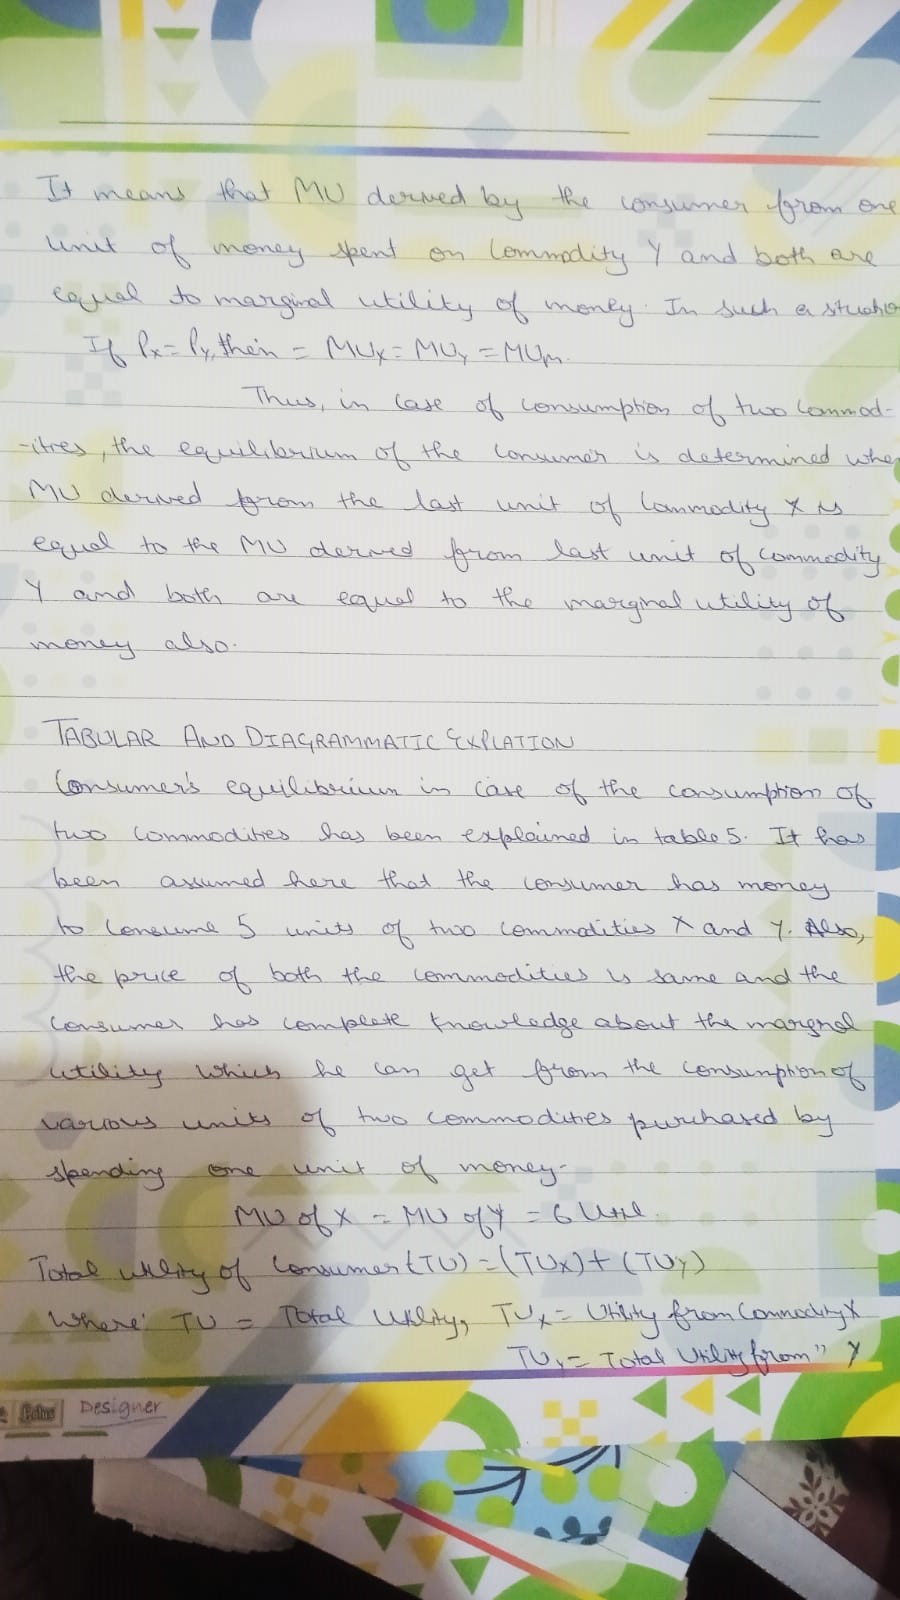 It means that MU derived by the consumer from one
unit of money spent on Commodity Y and both are
equal to marginal utility of money. In such a situatio
If Px = Py, then = MUx = MUy = MUm.
Thus, in case of consumption of two Commod-
-ities, the equilibrium of the consumer is determined whe
MU derived from the last unit of Commodity X is
equal to the MU derived from last unit of commodity
Y and both are equal to the marginal utility of
money also.
TABULAR AND DIAGRAMMATIC EXPLATION
Consumer's equilibrium in case of the consumption of
two Commodities has been explained in table 5. It has
been assumed here that the consumer has money
to Consume 5 units of two commodities X and Y. Also,
the price of both the commodities is same and the
Consumer has complete knowledge about the marginal
utility which he can get from the consumption of
various units of two commodities purchased by
spending one unit of money-
MU of X = MU of Y = 6 Util.
Total utility of Consumer (TU) = (TUx) + (TUy)
Where: TU = Total Utility, TUx = Utility from Commodity X
TUy = Total Utility from " Y
Designer